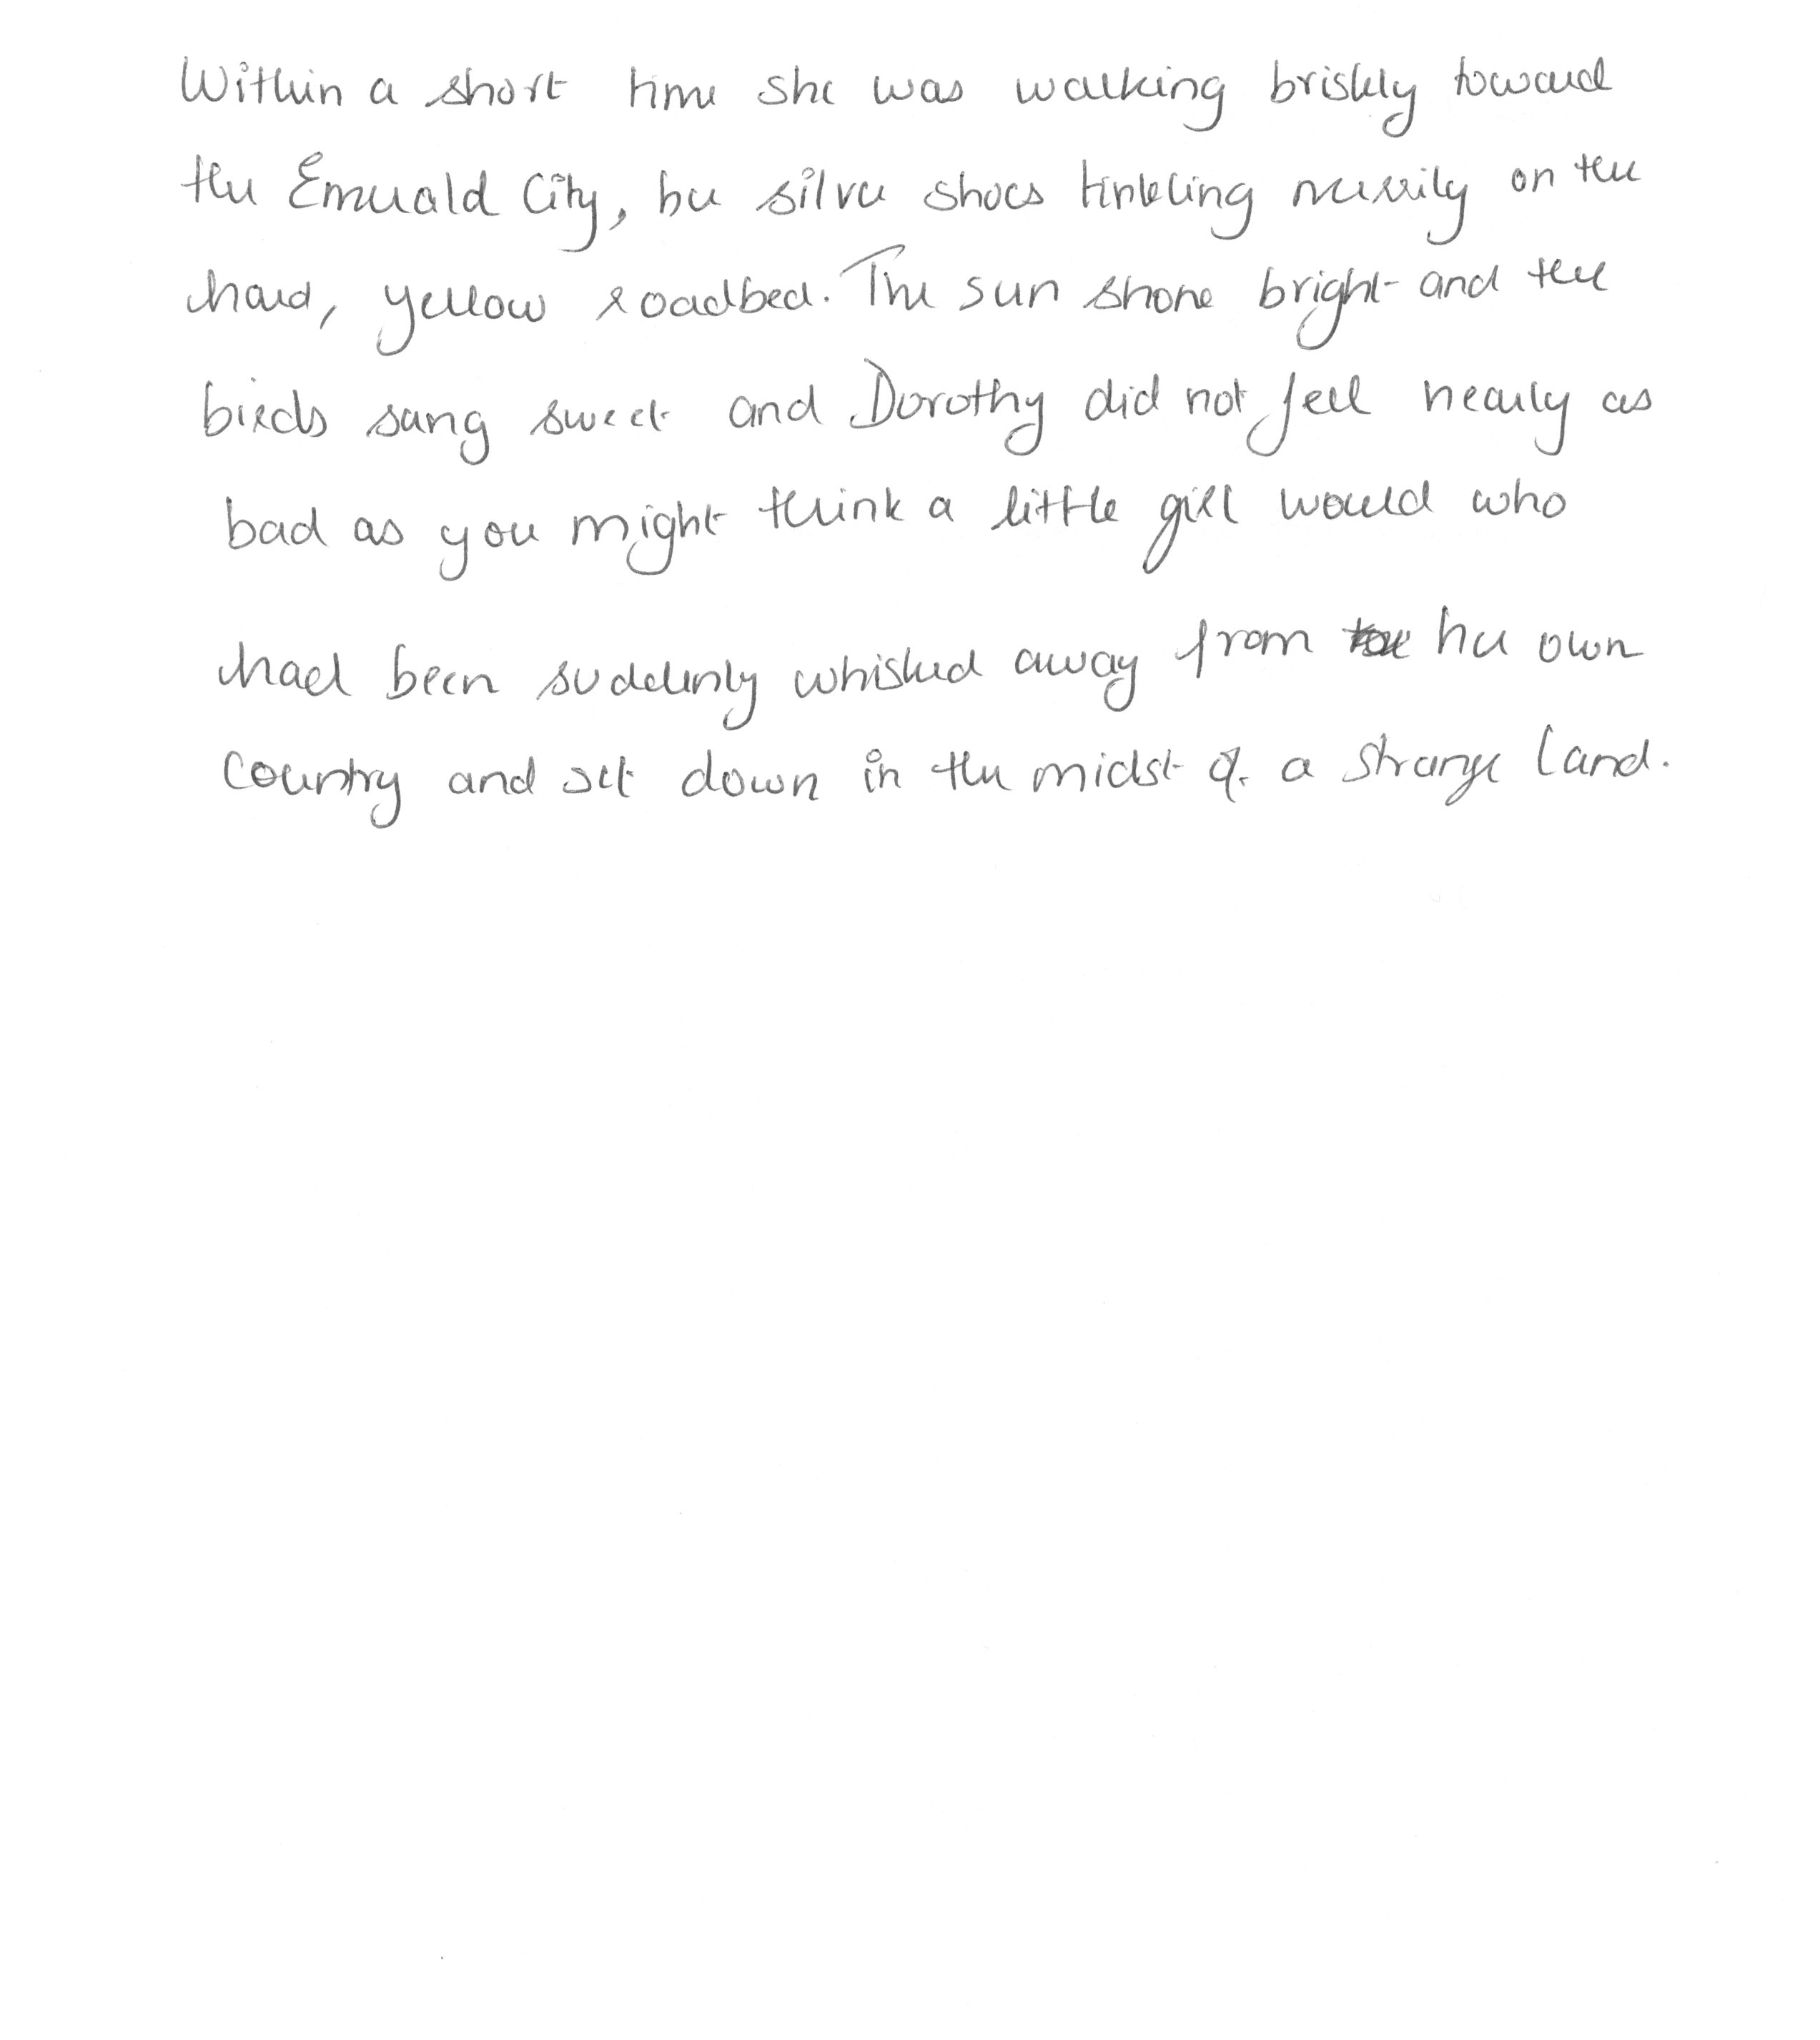 Within a short time she was walking briskly toward
the Emerald City, her silver shoes tinkling merrily on the
hard, yellow roadbed. The sun shone bright and the
birds sang sweet and Dorothy did not feel nearly as
bad as you might think a little girl would who
had been suddenly whisked away from her own
country and set down in the midst of a strange land.